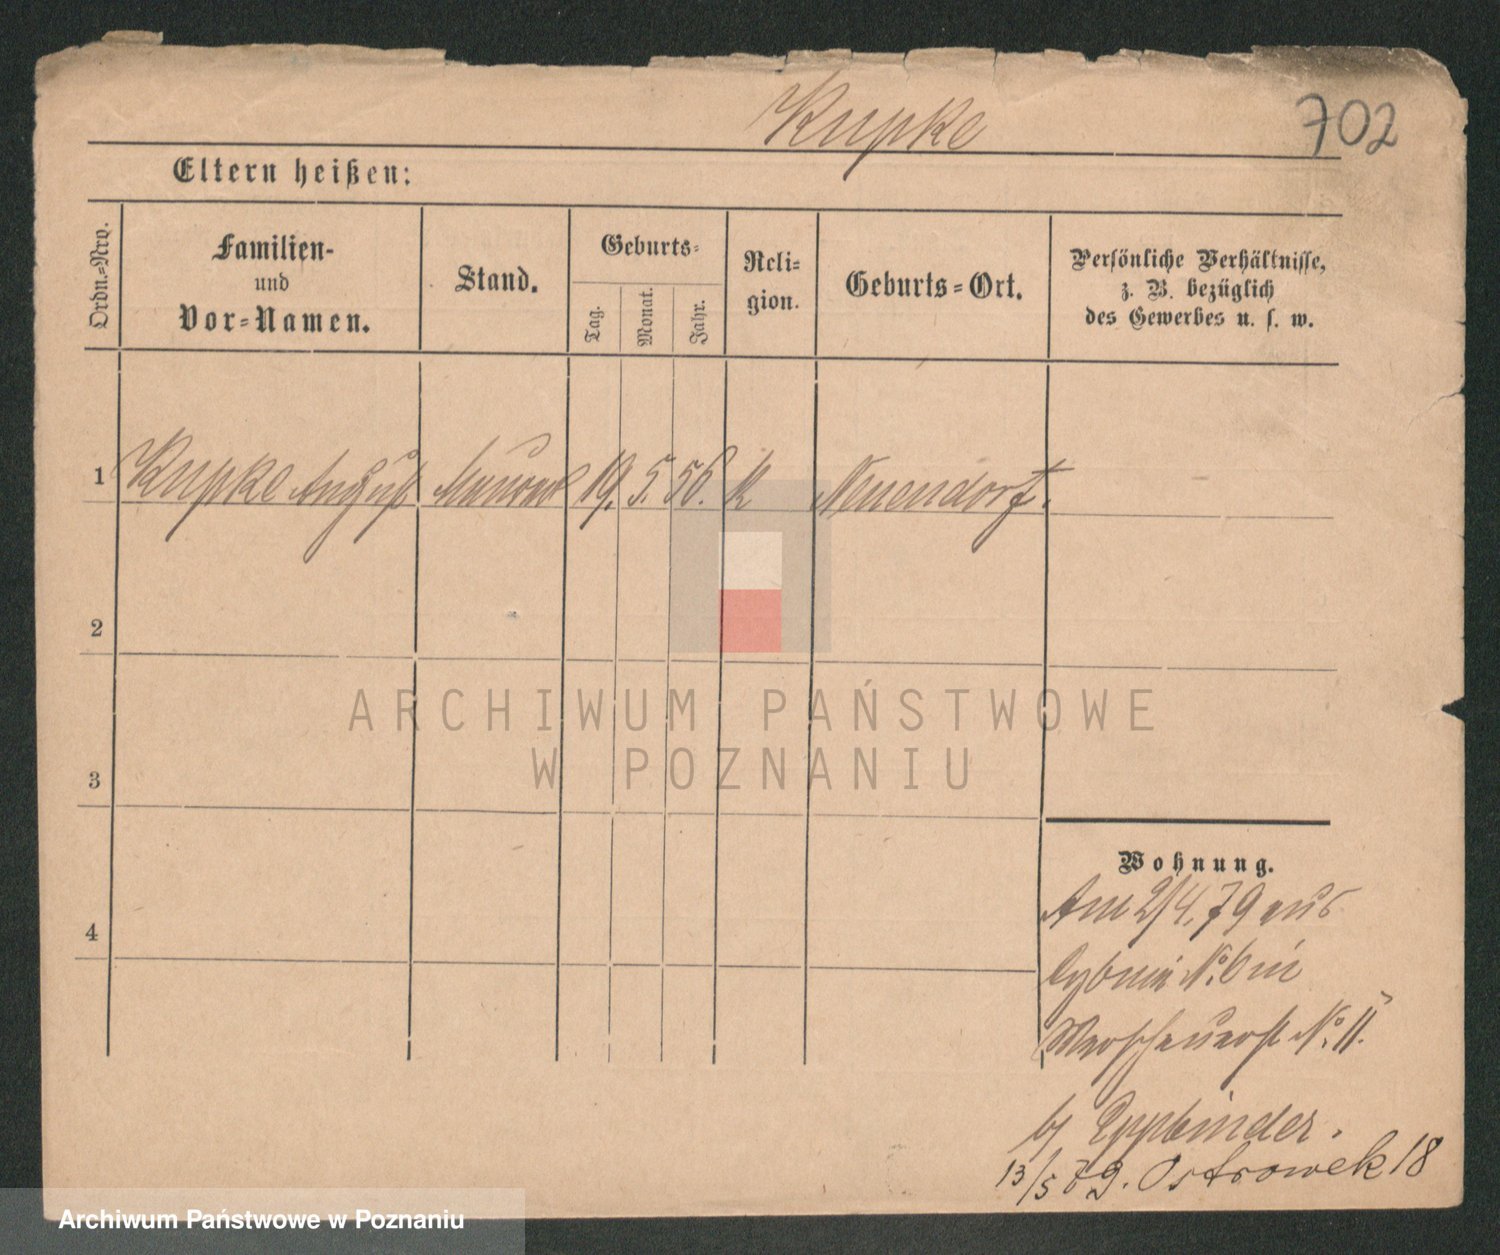 Kupke
702
Eltern heißen:
Ordn.=Nro.
Familien-
und
Vor=Namen.
Stand.
Geburts=
Tag.
Monat.
Jahr.
Reli=
gion.
Geburts=Ort.
Persönliche Verhältnisse,
z. B. bezüglich
des Gewerbes u. s. w.
1 Kupke August 19. 5. 56. k Neuendorf.
2
3
4
ARCHIWUM PAŃSTWOWE
W POZNANIU
Wohnung.
Am 2/4. 79 aus
No. 6 in
No. 11.
b/ Eppbinder.
13/5 79. Ostrowek 18
Archiwum Państwowe w Poznaniu